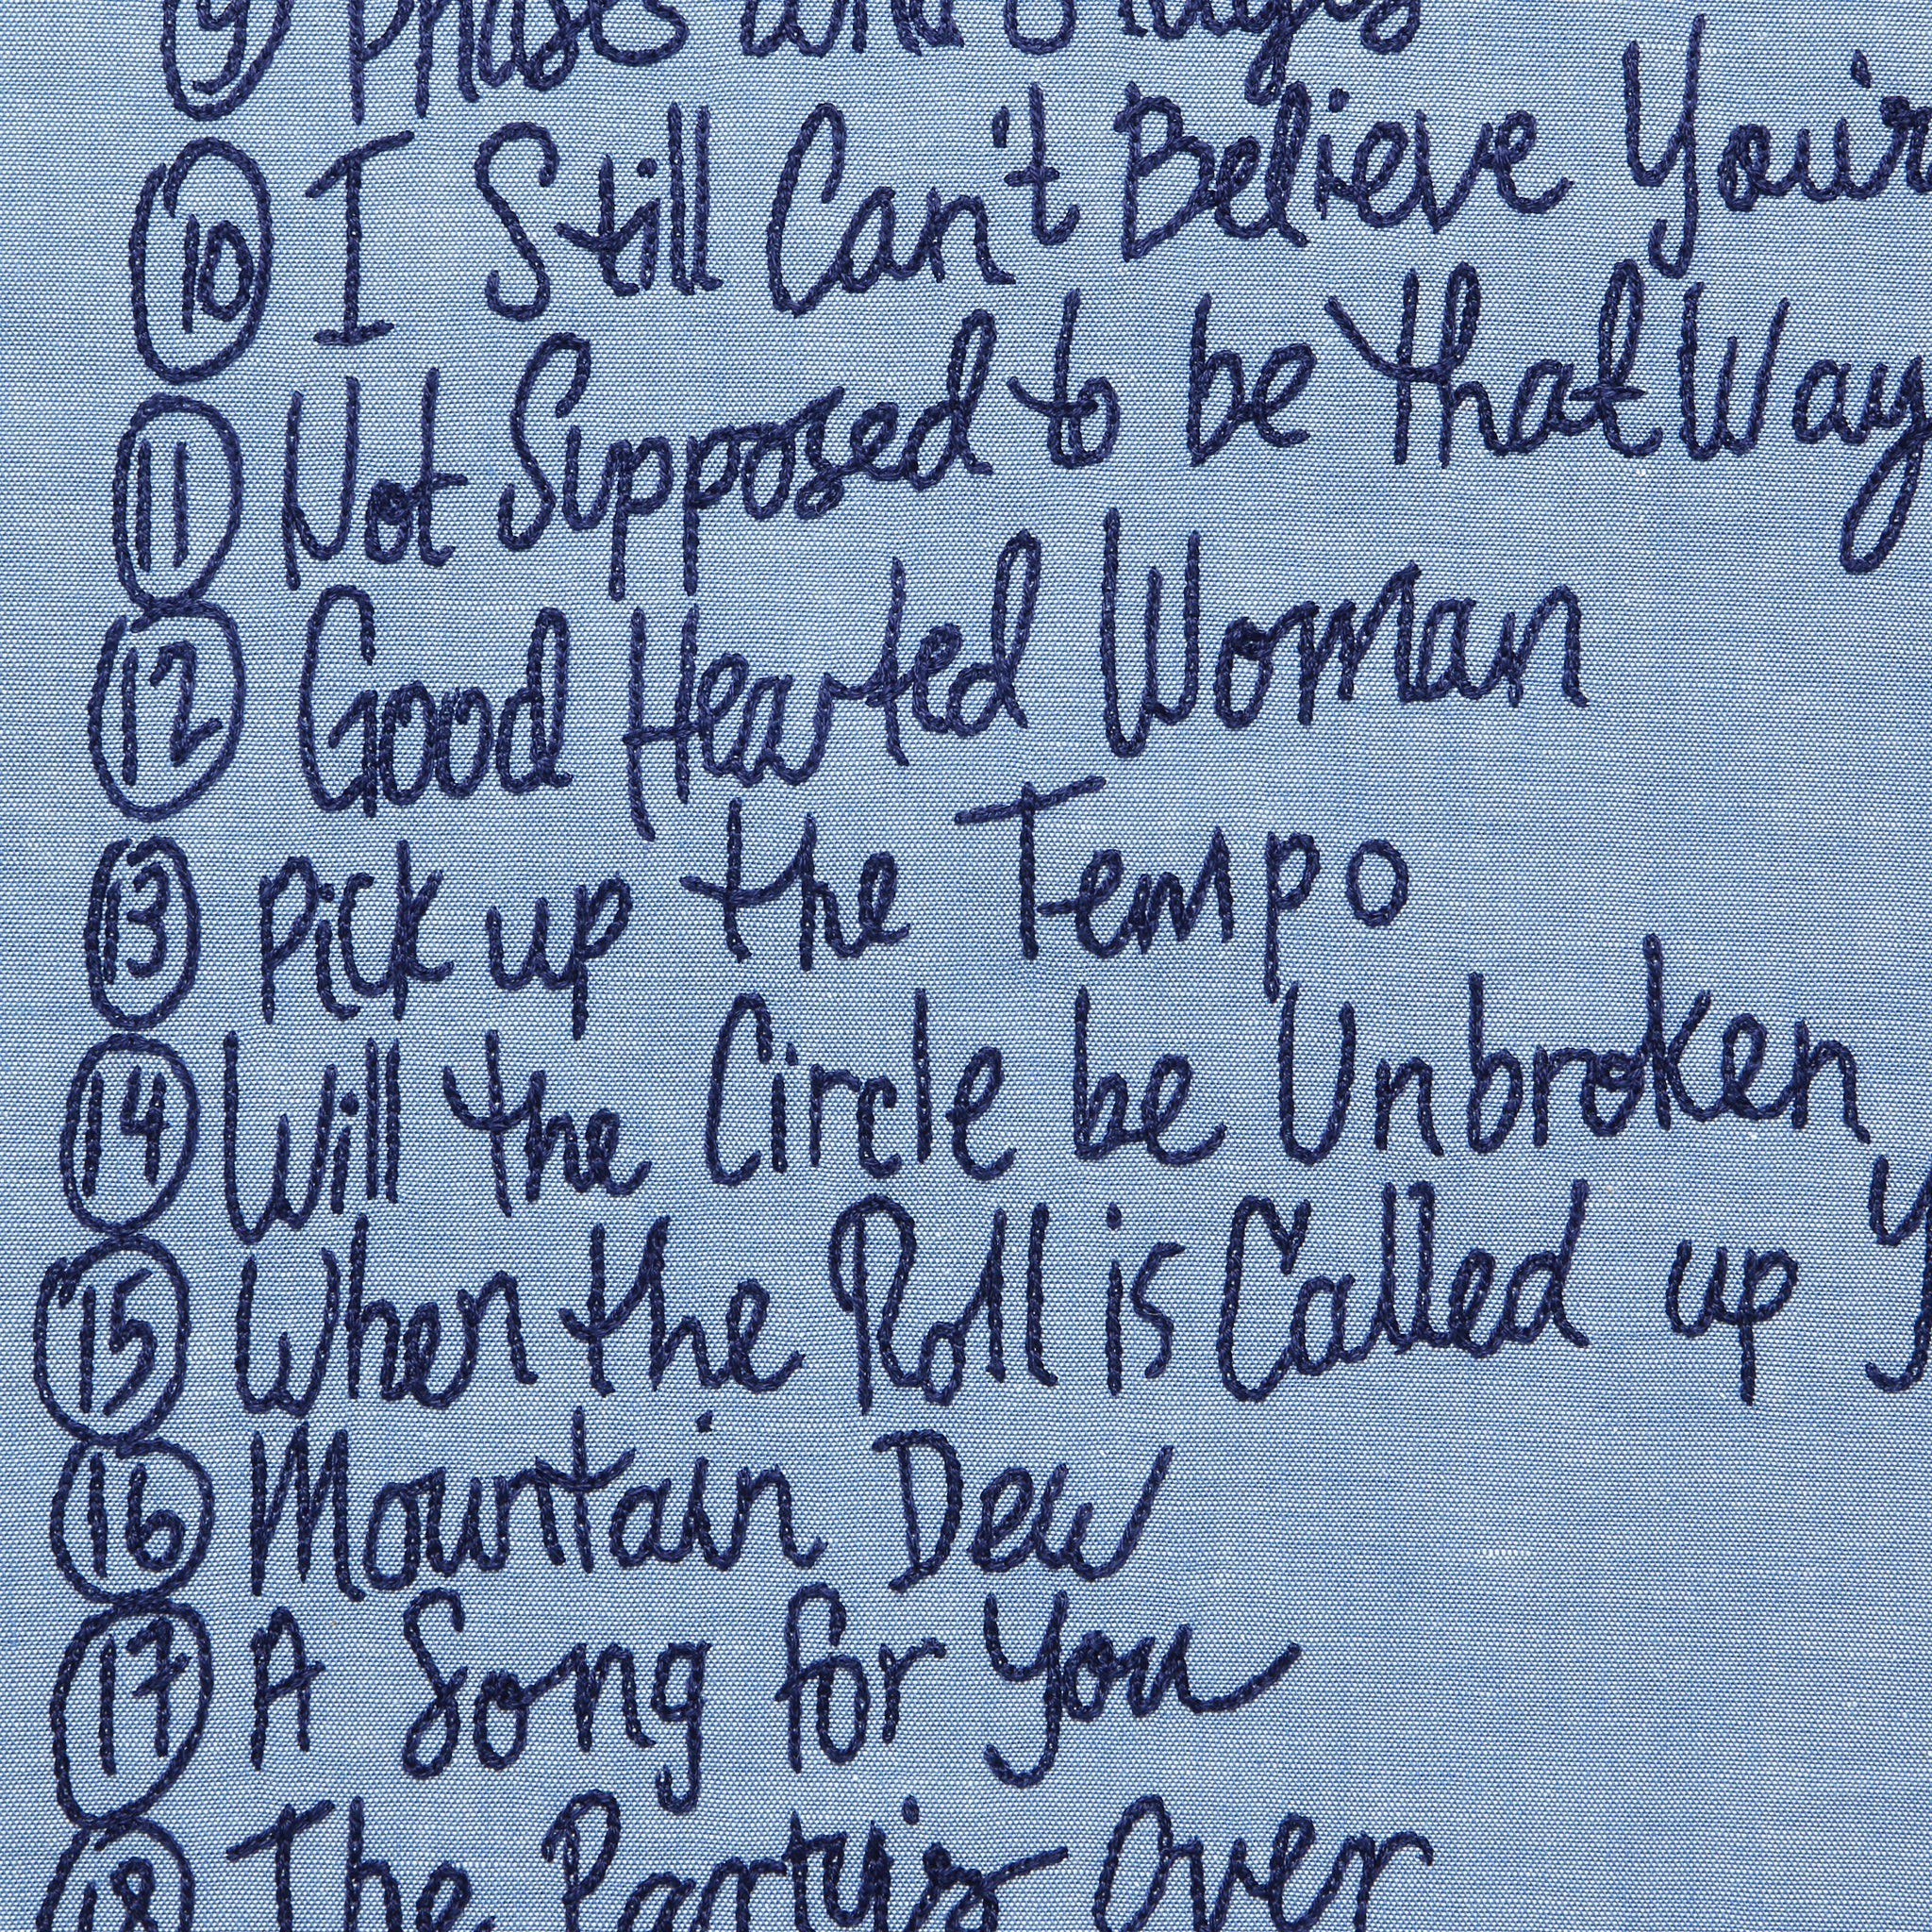 9 Phases and Stages
10 I Still Can't Believe You're
11 Not Supposed to be that Way
12 Good Hearted Woman
13 Pick up the Tempo
14 Will the Circle be Unbroken
15 When the Roll is Called up Y
16 Mountain Dew
17 A Song for You
18 The Party's Over